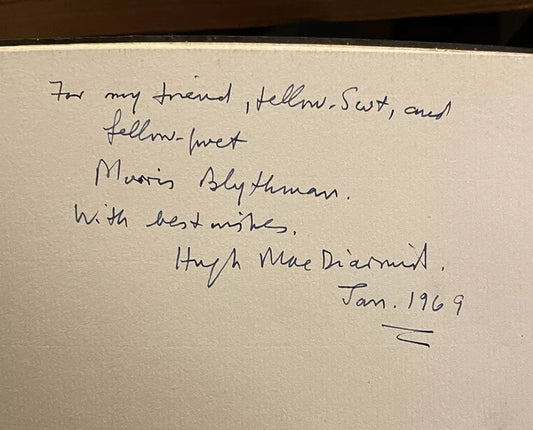 For my friend, fellow-Scot, and
fellow-poet
Morris Blythman.
With best wishes.
Hugh MacDiarmid.
Jan. 1969